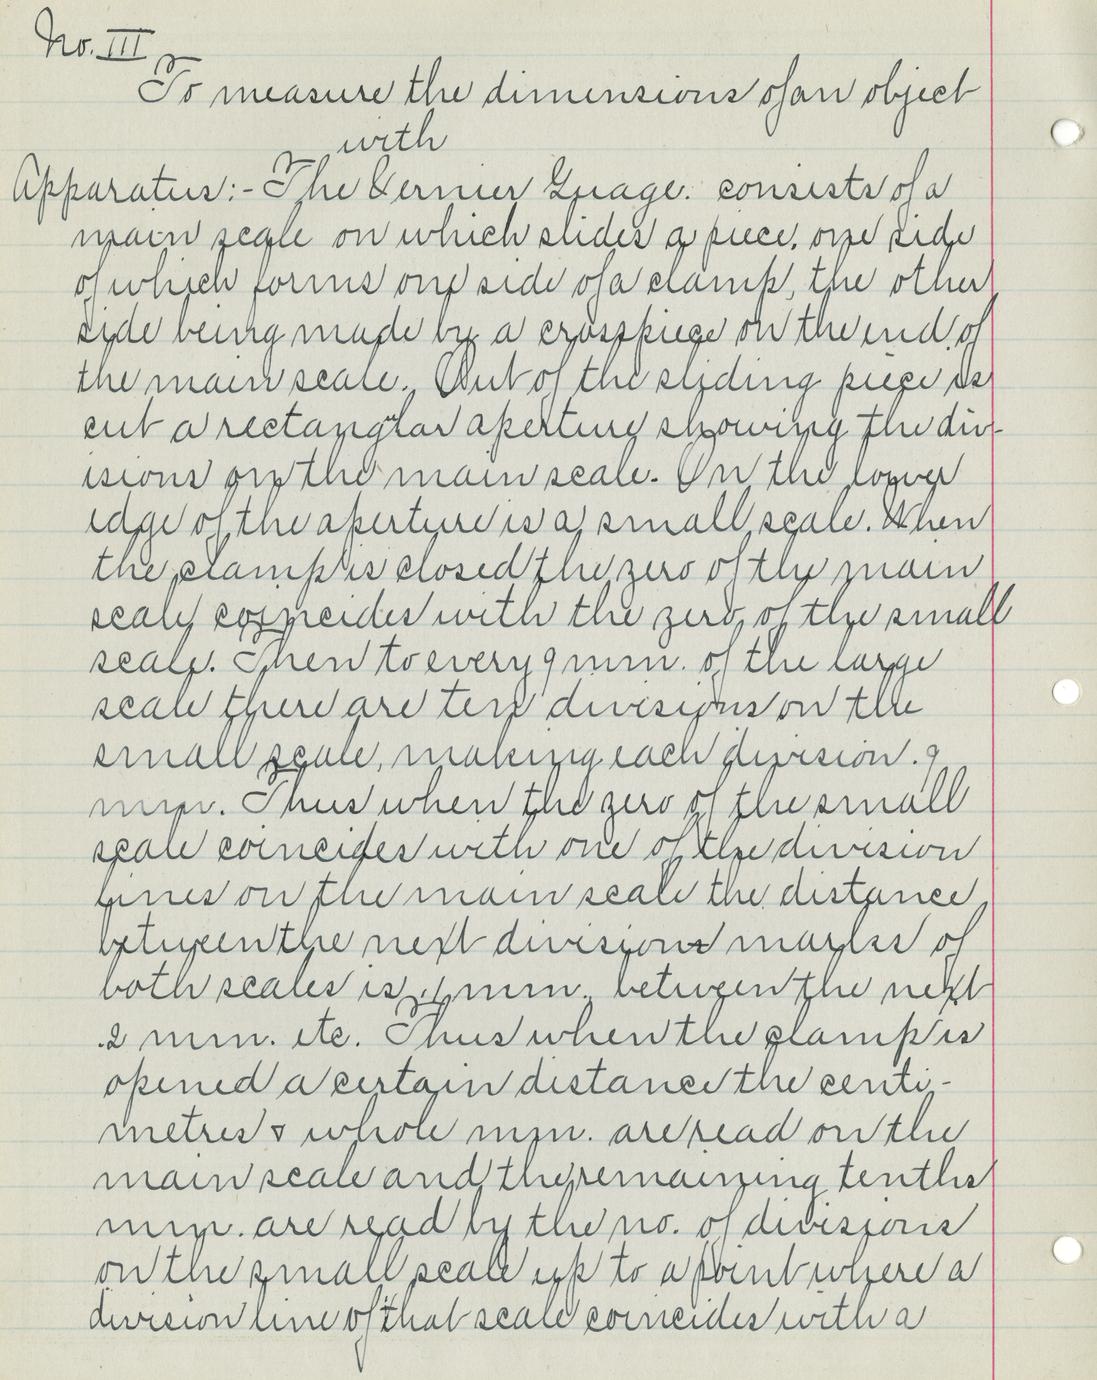 No. III
To measure the dimensions of an object
with
Apparatus:- The Vernier Guage. consists of a
main scale on which slides a piece, one side
of which forms one side of a clamp, the other
side being made by a crosspiece on the end of
the main scale. Out of the sliding piece is
cut a rectanglar aperture showing the div-
isions on the main scale. On the lower
edge of the aperture is a small scale. When
the clamp is closed the zero of the main
scale coincides with the zero of the small
scale. Then to every 9 mm. of the large
scale there are ten divisions on the
small scale, making each division .9
mm. Thus when the zero of the small
scale coincides with one of the division
lines on the main scale the distance
between the next divisions marks of
both scales is .1 mm. between the next
.2 mm. etc. Thus when the clamp is
opened a certain distance the centi-
metres & whole mm. are read on the
main scale and the remaining tenths
mm. are read by the no. of divisions
on the small scale up to a point where a
division line of that scale coincides with a